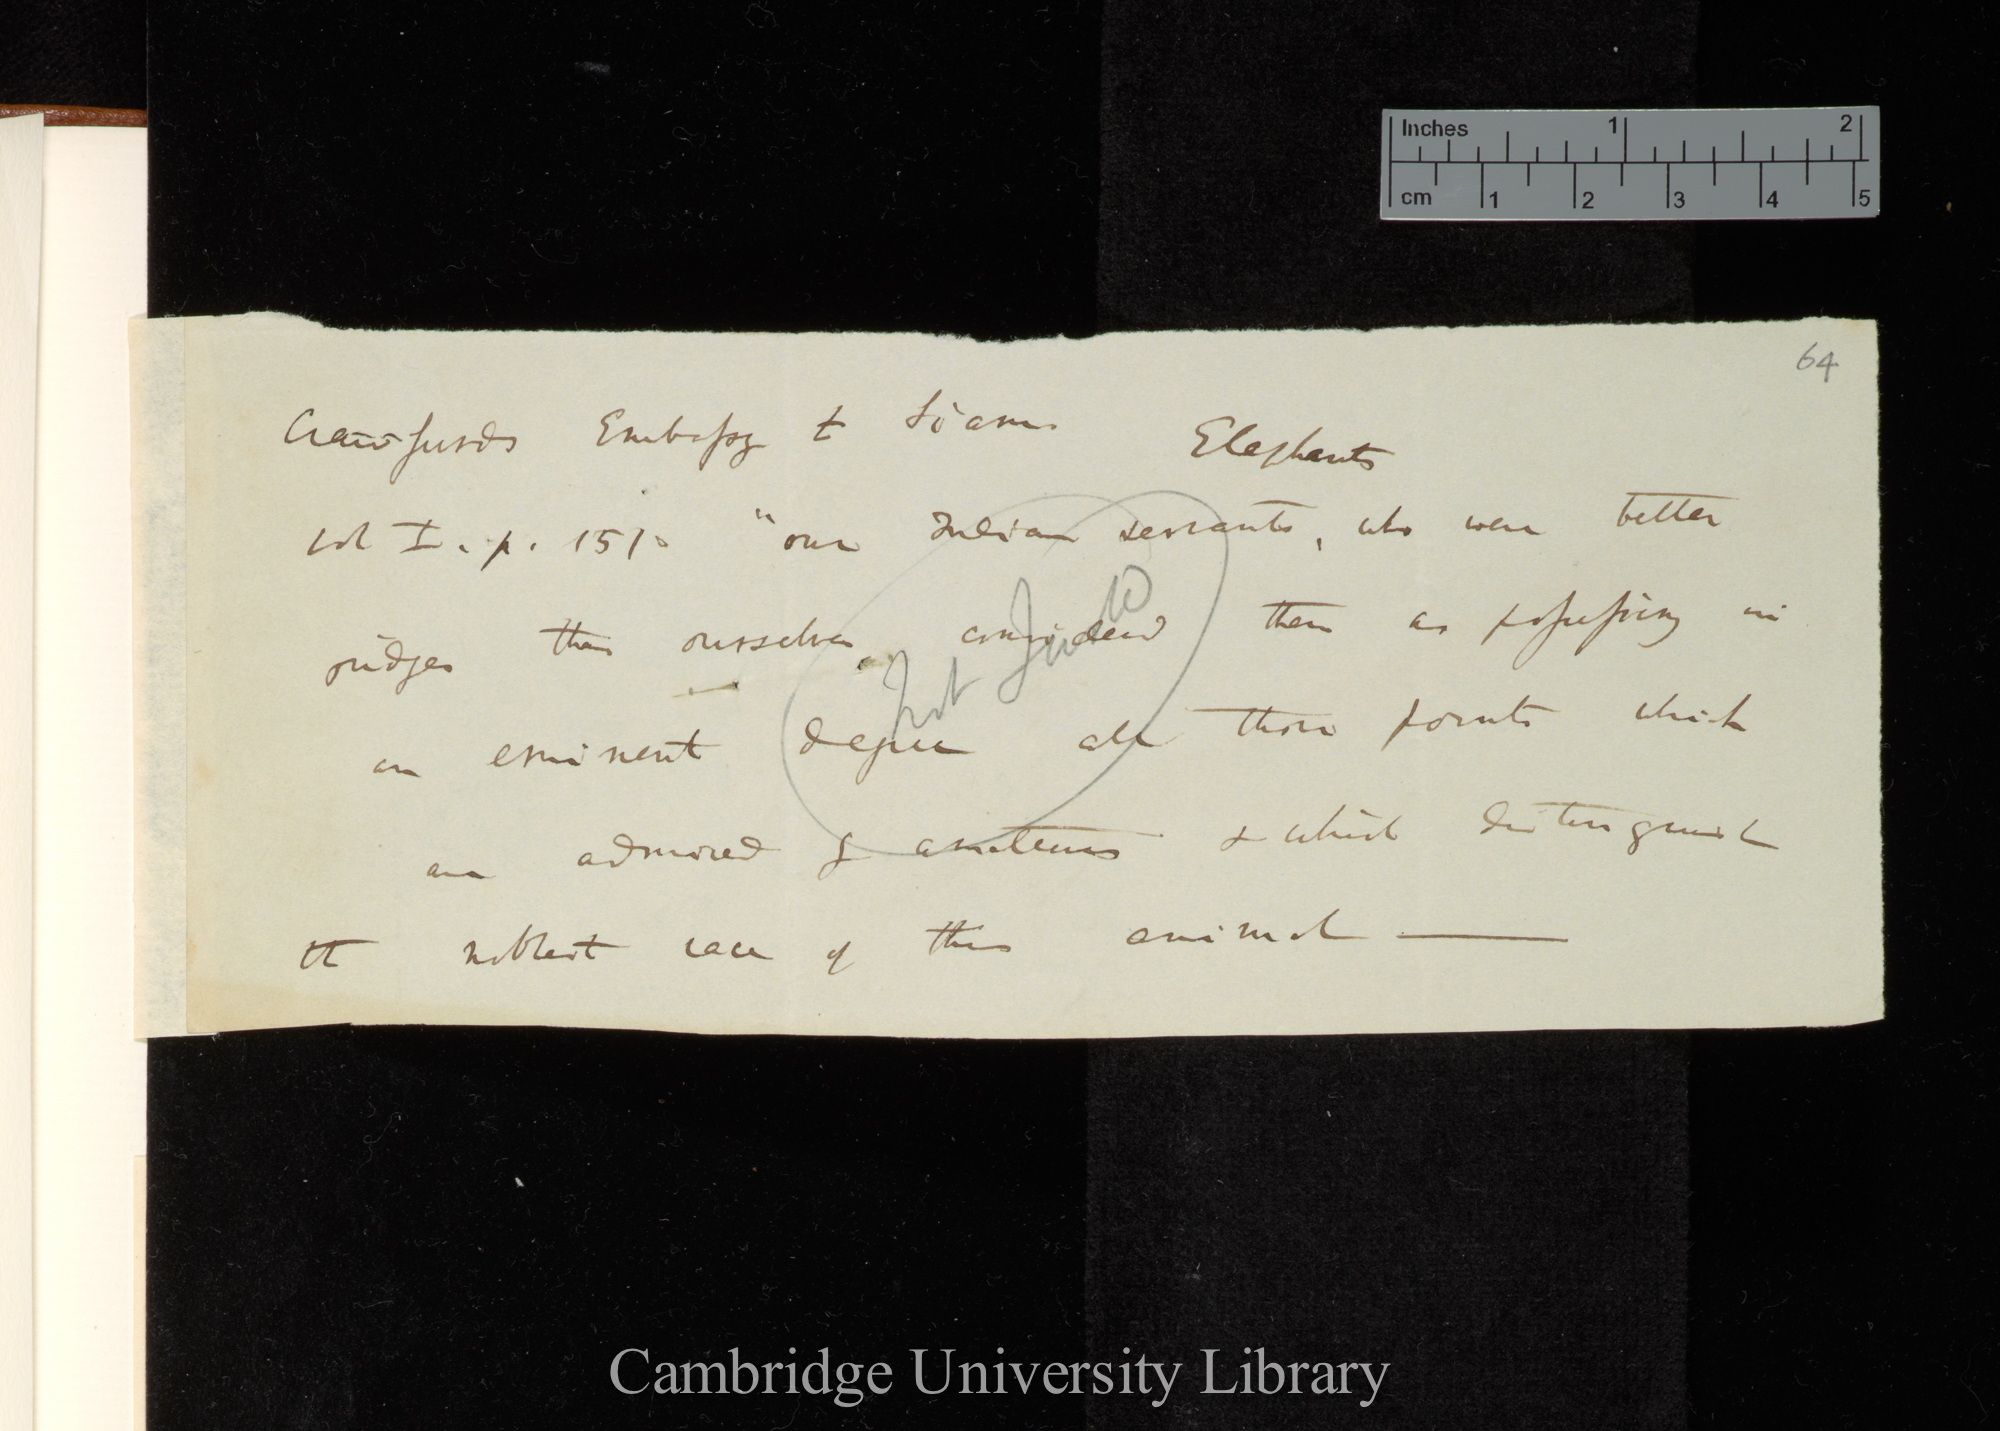 Inches 1 2
cm 1 2 3 4 5
64
Crawfurds Embassy to Siam Elephants
vol I. p. 151. "our Indian servants, who were better
judges than ourselves, considered them as possessing in
an eminent degree all those points which
are admired by amateurs & which distinguish
the noblest race of this animal —
Not Used
Cambridge University Library